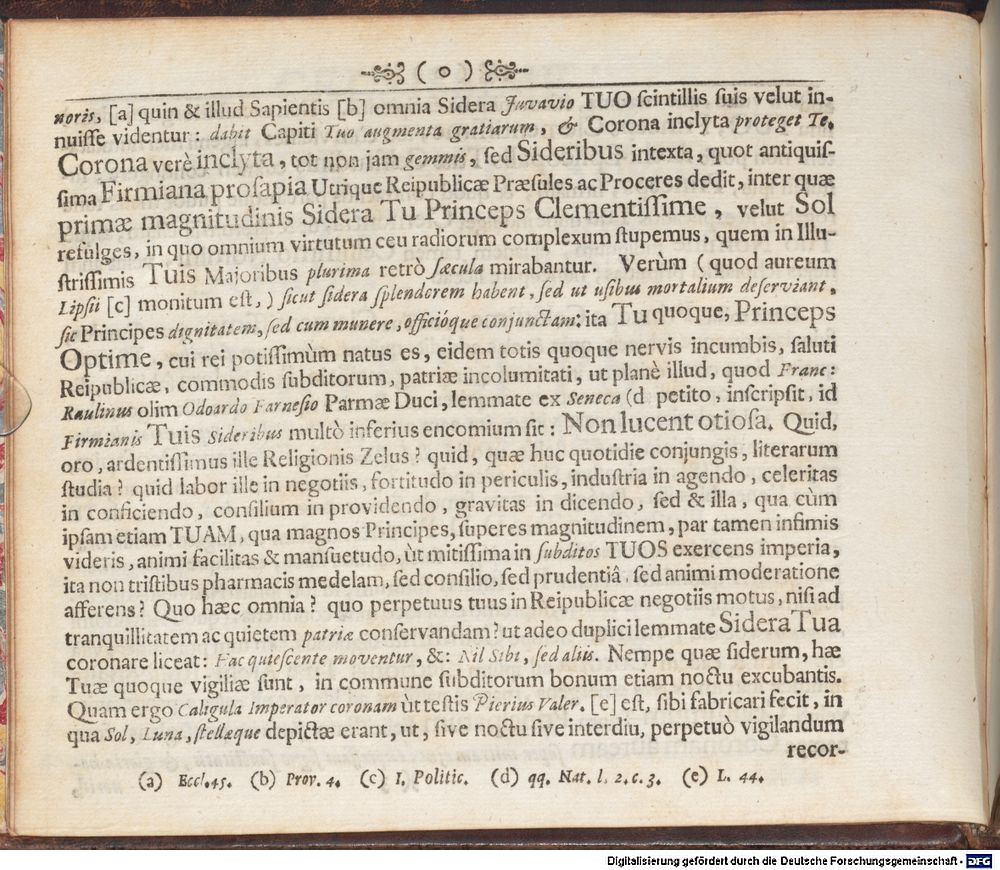 ( o )
noris, [a] quin & illud Sapientis [b] omnia Sidera Juvavio TUO ſcintillis ſuis velut in-
nuiſſe videntur: dabit Capiti Tuo augmenta gratiarum, & Corona inclyta proteget Te.
Corona verè inclyta, tot non jam gemmis, ſed Sideribus intexta, quot antiquiſ-
ſima Firmiana proſapia Utrique Reipublicæ Præſules ac Proceres dedit, inter quæ
primæ magnitudinis Sidera Tu Princeps Clementiſſime, velut Sol
refulges, in quo omnium virtutum ceu radiorum complexum ſtupemus, quem in Illu-
ſtriſſimis Tuis Majoribus plurima retrò ſæcula mirabantur. Verùm (quod aureum
Lipſii [c] monitum eſt,) ſicut ſidera ſplendorem habent, ſed ut uſibus mortalium deſerviant,
ſic Principes dignitatem, ſed cum munere, officióque conjunctam: ita Tu quoque, Princeps
Optime, cui rei potiſſimùm natus es, eidem totis quoque nervis incumbis, ſaluti
Reipublicæ, commodis ſubditorum, patriæ incolumitati, ut planè illud, quod Franc:
Raulinus olim Odoardo Farneſio Parmæ Duci, lemmate ex Seneca (d petito, inſcripſit, id
Firmianis Tuis Sideribus multò inferius encomium ſit: Non lucent otioſa. Quid,
oro, ardentiſſimus ille Religionis Zelus? quid, quæ huc quotidie conjungis, literarum
ſtudia? quid labor ille in negotiis, fortitudo in periculis, induſtria in agendo, celeritas
in conficiendo, conſilium in providendo, gravitas in dicendo, ſed & illa, qua cùm
ipſam etiam TUAM, qua magnos Principes, ſuperes magnitudinem, par tamen infimis
videris, animi facilitas & manſuetudo, ùt mitiſſima in ſubditos TUOS exercens imperia,
ita non triſtibus pharmacis medelam, ſed conſilio, ſed prudentiâ, ſed animi moderatione
afferens? Quo hæc omnia? quo perpetuus tuus in Reipublicæ negotiis motus, niſi ad
tranquillitatem ac quietem patriæ conſervandam? ut adeo duplici lemmate Sidera Tua
coronare liceat: Hac quieſcente moventur, &: Nil Sibi, ſed aliis. Nempe quæ ſiderum, hæ
Tuæ quoque vigiliæ ſunt, in commune ſubditorum bonum etiam noctu excubantis.
Quam ergo Caligula Imperator coronam ùt teſtis Pierius Valer. [e] eſt, ſibi fabricari fecit, in
qua Sol, Luna, ſtellæque depictæ erant, ut, ſive noctu ſive interdiu, perpetuò vigilandum
recor-
(a) Eccl. 45. (b) Prov. 4. (c) I. Politic. (d) qq. Nat. l. 2. c. 3. (e) L. 44.
Digitalisierung gefördert durch die Deutsche Forschungsgemeinschaft - DFG